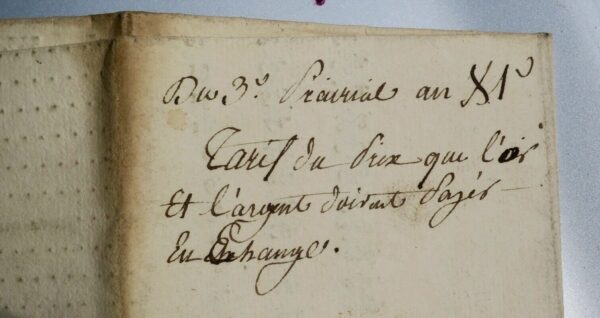 Du 3.º Prairial an XIº
Tarif du Prix que l'or
Et l'argent doivent Payér
En Echange.